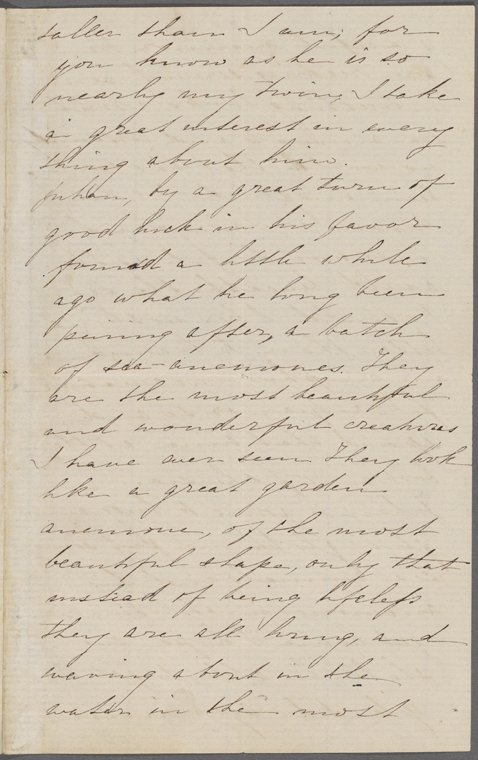 taller than I am; for
you know as he is so
nearly my twin, I take
a great interest in every
thing about him.
Julian, by a great turn of
good luck in his favor
found a little while
ago what he long been
pining after, a batch
of sea-anemones. They
are the most beautiful
and wonderful creatures
I have ever seen. They look
like a great garden
anemone, of the most
beautiful shape, only that
instead of being lifeless
they are all living, and
waving about in the
water in the most